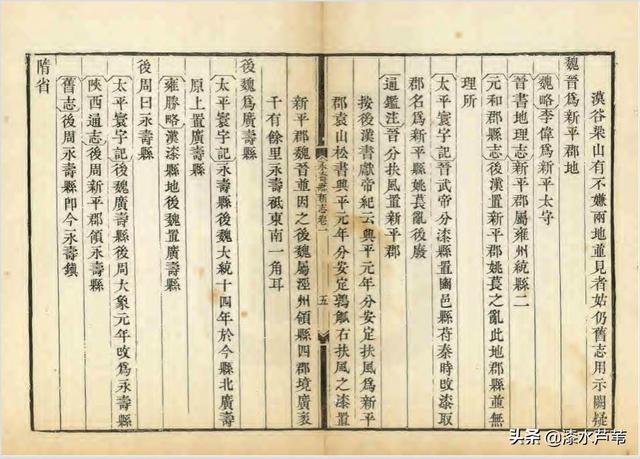 滇谷梁山有不嫌兩地並見者姑仍舊志用示闕疑
魏晉爲新平郡地
魏略李偉爲新平太守
晉書地理志新平郡屬雍州統縣二
元和郡縣志後漢置新平郡姚萇之亂此地郡縣並無
理所
太平寰宇記晉武帝分漆縣置豳邑縣苻秦時改漆取
郡名爲新平縣姚萇亂後廢
通鑑注晉分扶風置新平郡
按後漢書獻帝紀云興平元年分安定扶風爲新平
郡袁山松書興平元年分安定鶉觚右扶風之漆置
永壽縣新志卷一
五
新平郡魏晉並因之後魏屬涇州領縣四郡境廣袤
千有餘里永壽祗東南一角耳
後魏爲廣壽縣
太平寰宇記永壽縣後魏大統十四年於今縣北廣壽
原上置廣壽縣
雍勝略漢漆縣地後魏置廣壽縣
後周曰永壽縣
太平寰宇記後魏廣壽縣後周大象元年改爲永壽縣
陝西通志後周新平郡領永壽縣
舊志後周永壽縣卽今永壽鎮
隋省
头条 @漆水芦苇